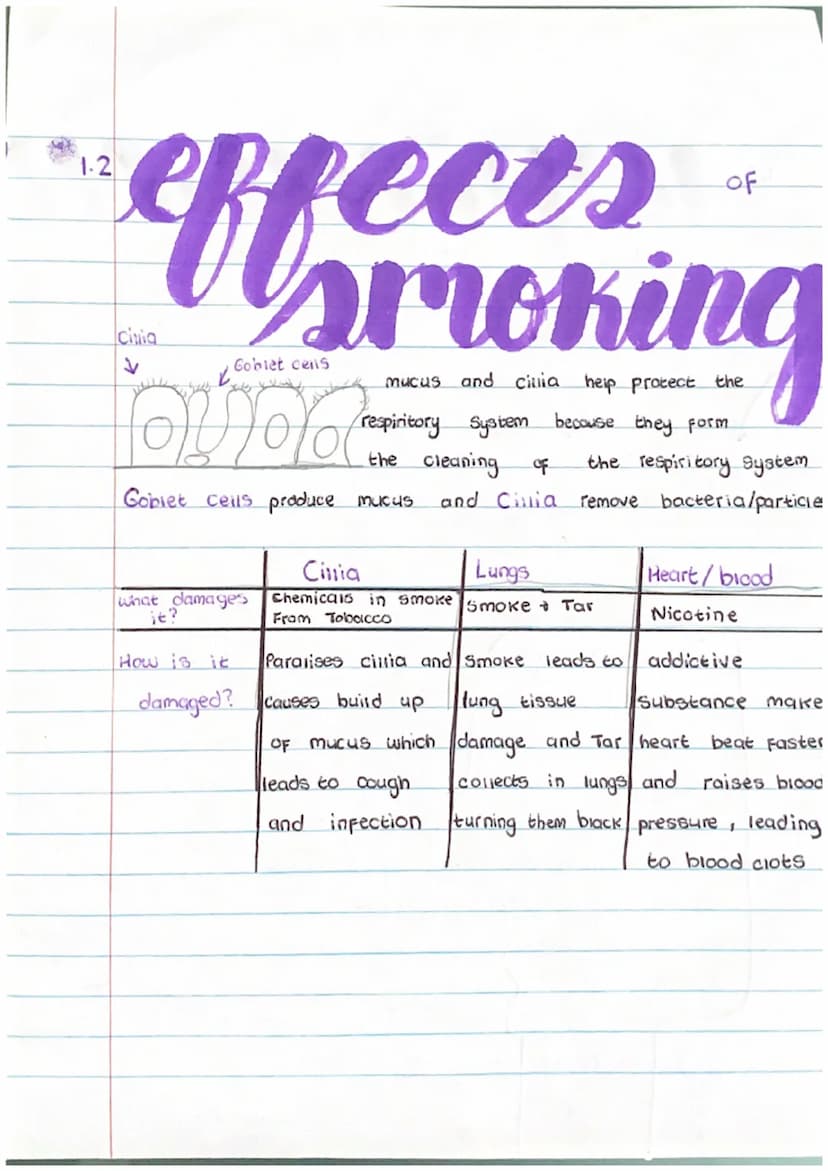 1.2 effects OF
smoking
Cillia
Goblet cells
mucus and cillia help protect the
respiritory system because they form
the cleaning of the respiritory system
Goblet cells produce mucus and Cillia remove bacteria/particle
Cillia Lungs Heart/blood
what damages it? Chemicals in smoke From Tobacco Smoke + Tar Nicotine
How is it Paralises cillia and Smoke leads to addictive
damaged? causes build up lung tissue substance make
of mucus which damage and Tar heart beat faster
leads to cough collects in lungs and raises blood
and infection turning them black pressure, leading
to blood clots